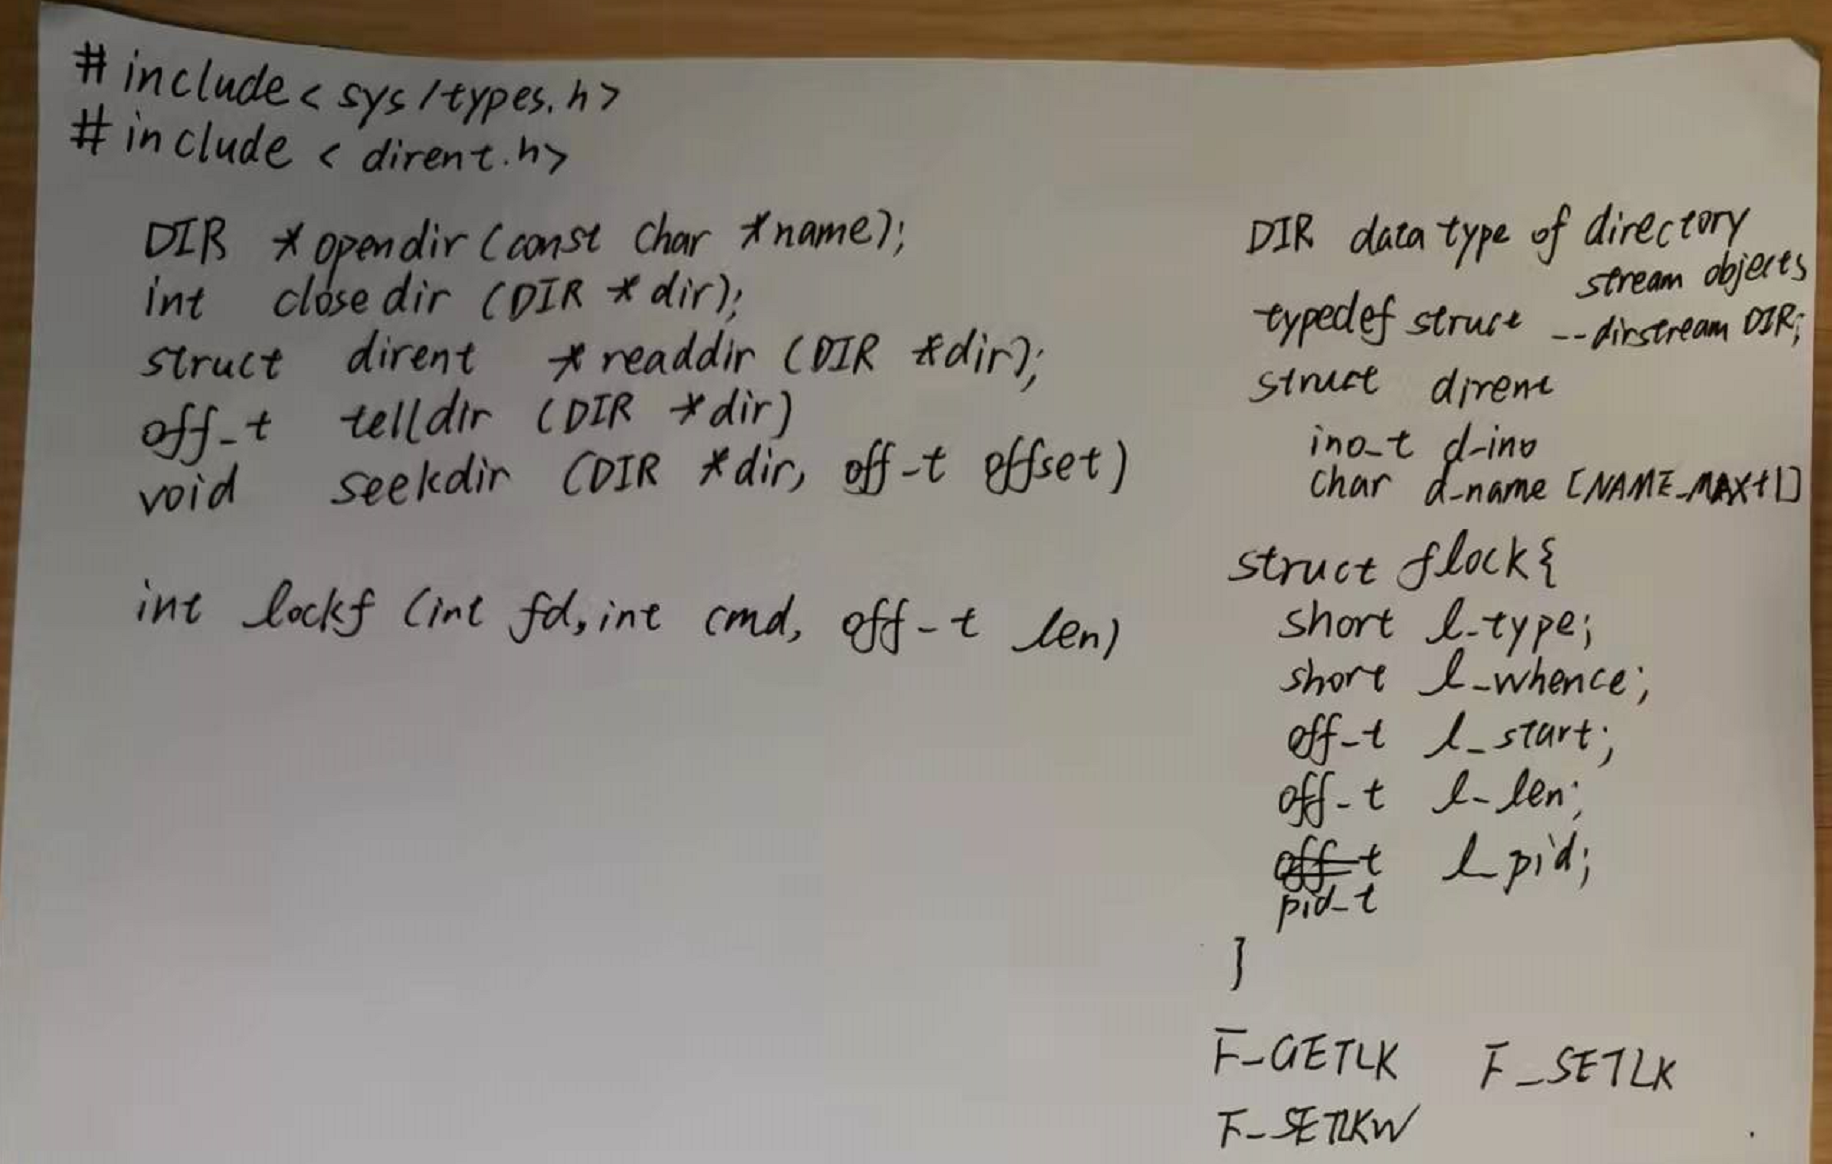 # include < sys/types.h>
# include < dirent.h>
DIR *opendir (const char *name);
int closedir (DIR *dir);
struct dirent *readdir (DIR *dir);
off_t telldir (DIR *dir)
void seekdir (DIR *dir, off_t offset)
int lockf (int fd, int cmd, off_t len)
DIR data type of directory
stream objects
typedef struct __dirstream DIR;
struct dirent
ino_t d_ino
char d_name [NAME_MAX+1]
struct flock{
short l_type;
short l_whence;
off_t l_start;
off_t l_len;
off_t l_pid;
pid_t
}
F_GETLK F_SETLK
F_SETLKW